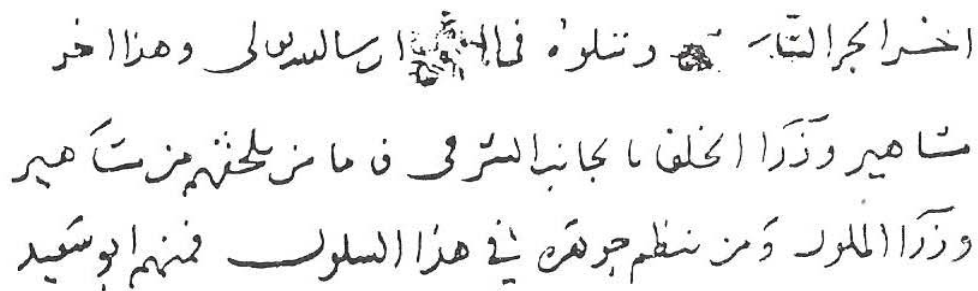 اخر الجز الثا وتتلوه في ان شا الله تعالى وهذا اخر
مشاهير وزرا الخلفا بالجانب الشرقي فاما من يلحق بهم من مشاهير
وزرا الملوك ومن ينظم جوهره في هذا السلوك فمنهم ابو سعيد